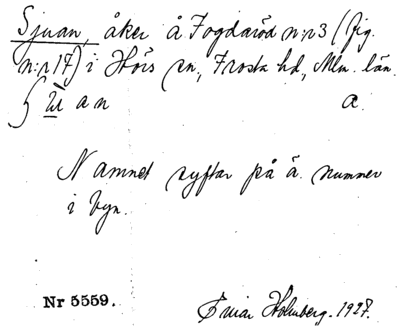 Sjuan, åker å Fogdaröd n:r 3 (fig.
n:r 17) i Hörs sn, Frosta hd, Mlm. län.
a n a.
Namnet syftar på å. nummer
i byn.
Nr 5559. Einar Holmberg. 1927.